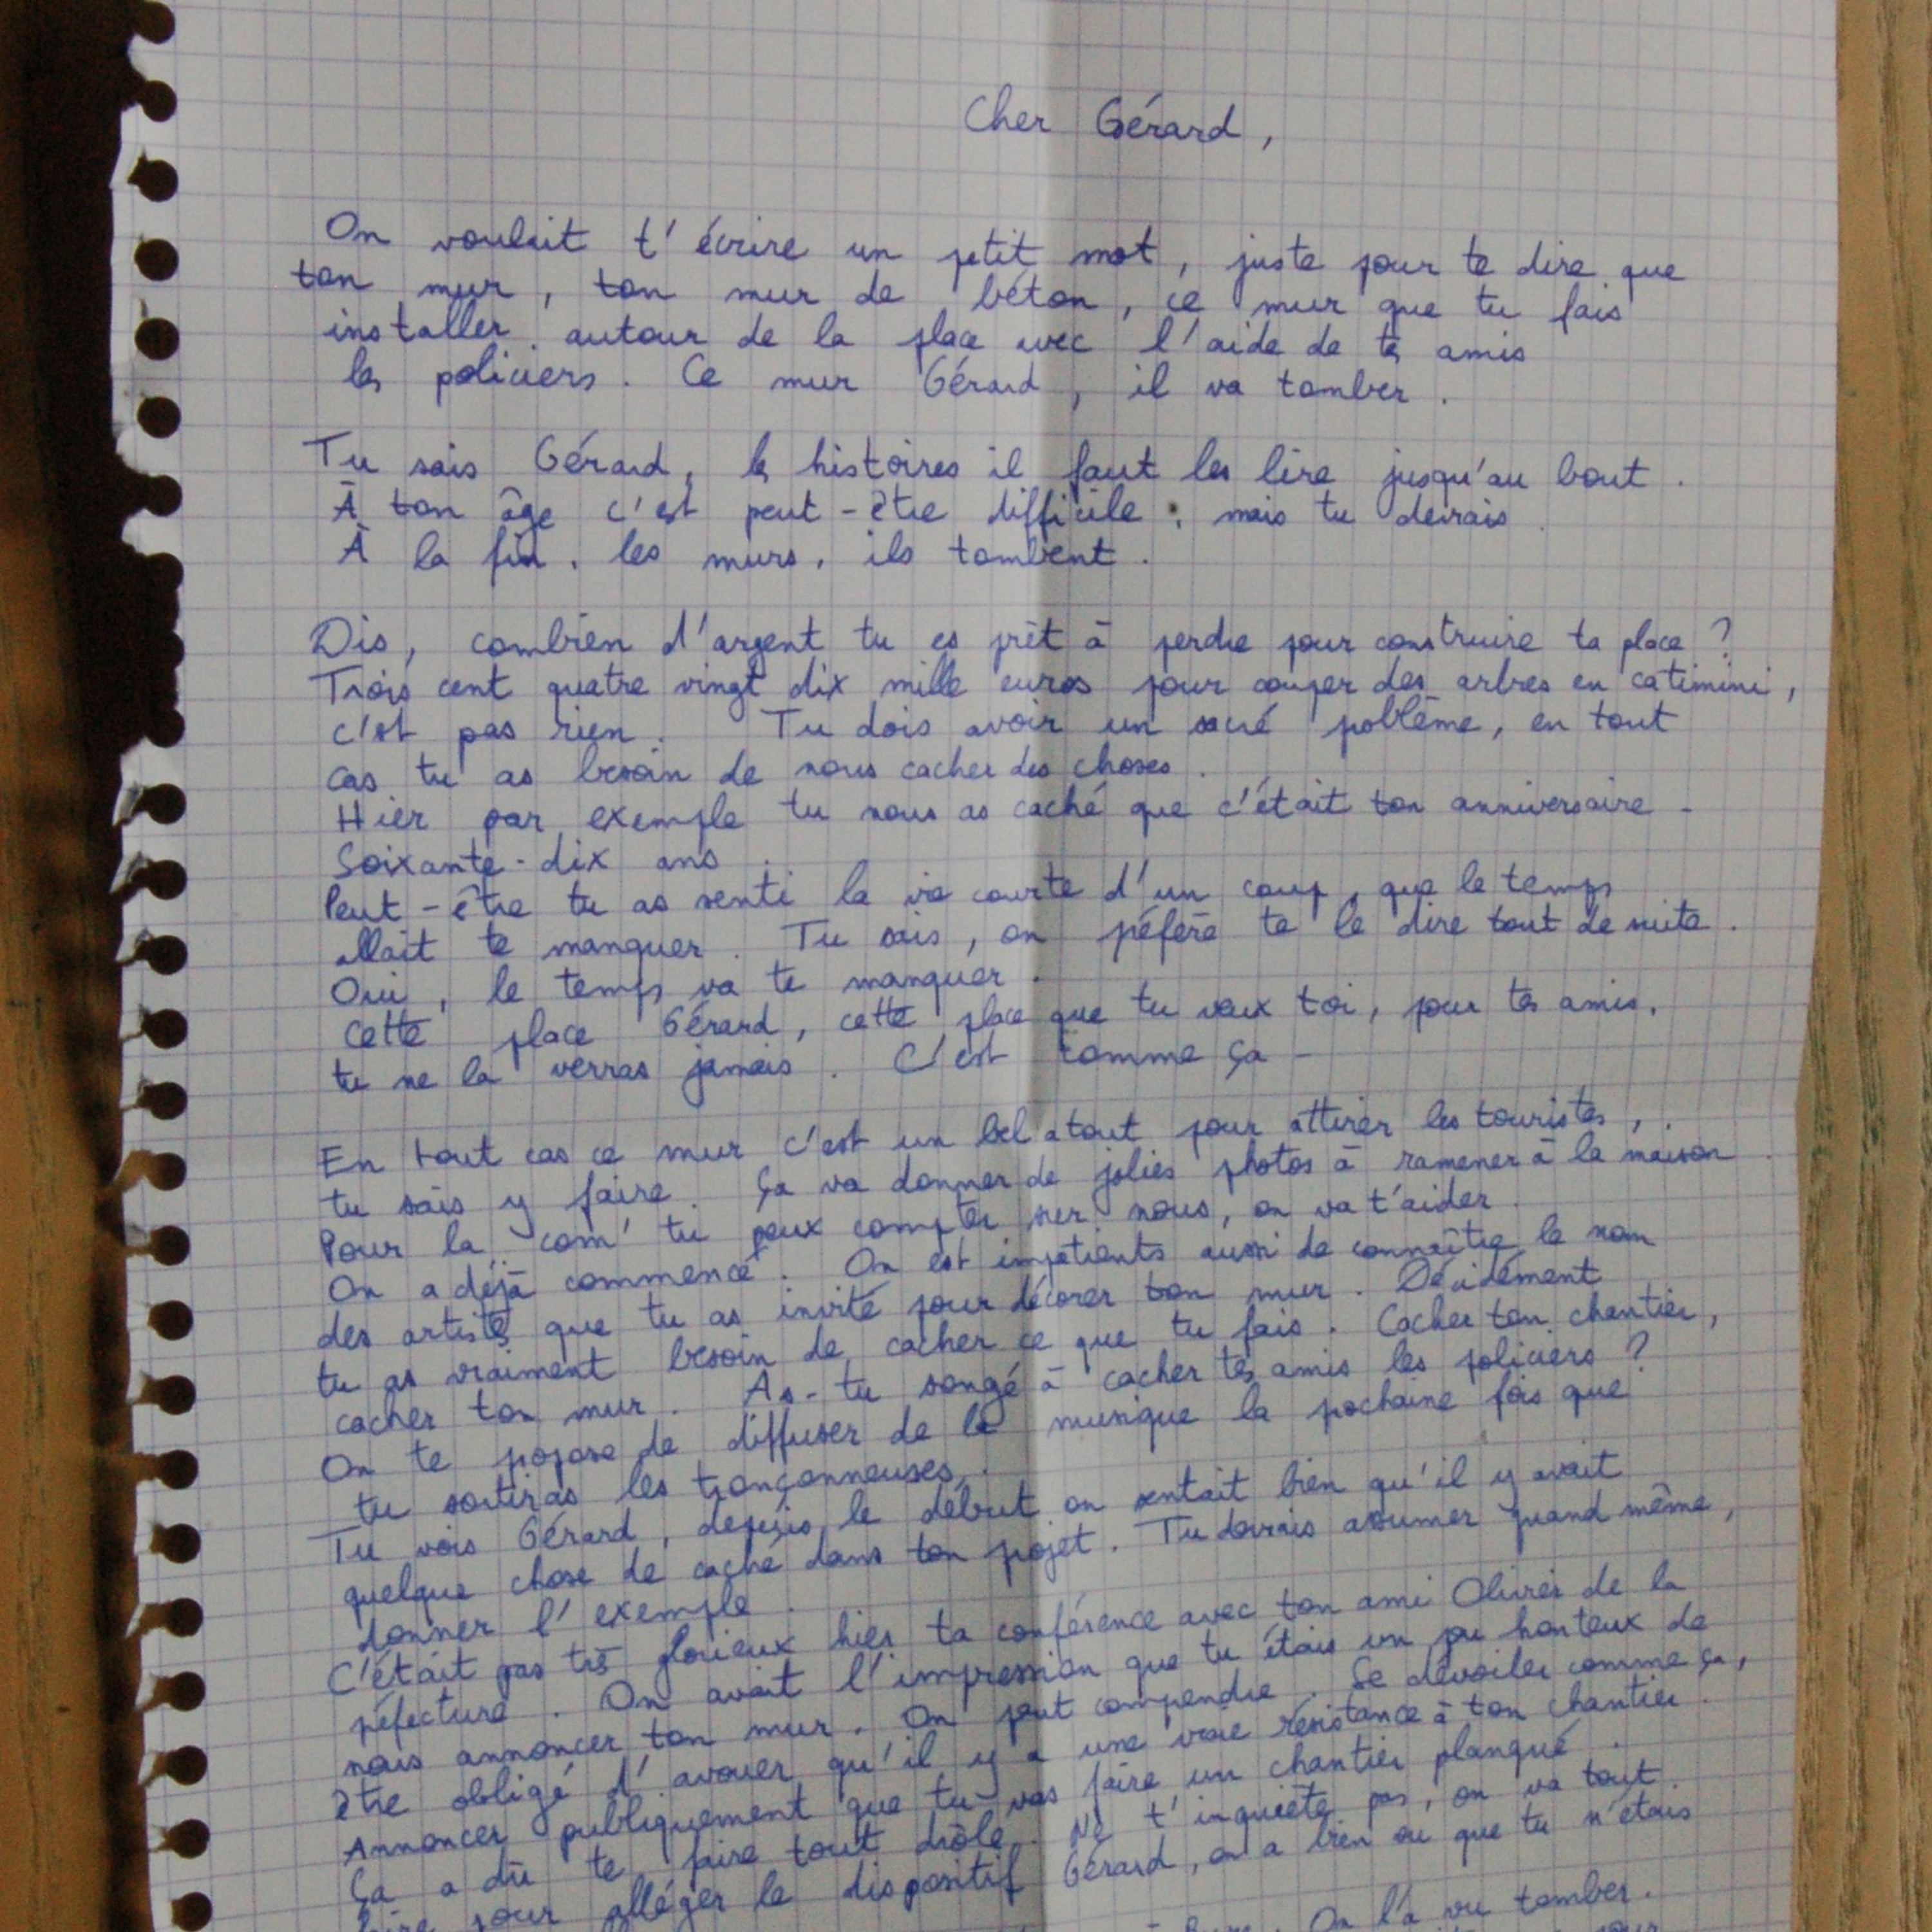 Cher Gérard,
On voulait t'écrire un petit mot, juste pour te dire que
ton mur, ton mur de béton, ce mur que tu fais
installer autour de la place avec l'aide de tes amis
les policiers. Ce mur Gérard, il va tomber.
Tu sais Gérard, les histoires il faut les lire jusqu'au bout.
À ton âge c'est peut-être difficile, mais tu devrais.
À la fin, les murs, ils tombent.
Dis, combien d'argent tu es prêt à perdre pour construire ta place ?
Trois cent quatre vingt dix mille euros pour couper des arbres en catimini,
c'est pas rien. Tu dois avoir un sacré problème, en tout
cas tu as besoin de nous cacher des choses.
Hier par exemple tu nous as caché que c'était ton anniversaire -
Soixante-dix ans.
Peut-être tu as senti la vie courte d'un coup, que le temps
allait te manquer. Tu sais, on préfère te le dire tout de suite.
Oui, le temps va te manquer.
Cette place Gérard, cette place que tu veux toi, pour tes amis,
tu ne la verras jamais. C'est comme ça -
En tout cas ce mur c'est un bel atout pour attirer les touristes,
tu sais y faire. Ça va donner de jolies photos à ramener à la maison.
Pour la com' tu peux compter sur nous, on va t'aider.
On a déjà commencé. On est impatients aussi de connaître le nom
des artistes que tu as invité pour décorer ton mur. Décidément
tu as vraiment besoin de cacher ce que tu fais. Cacher ton chantier,
cacher ton mur. As-tu songé à cacher tes amis les policiers ?
On te propose de diffuser de la musique la prochaine fois que
tu sortiras les tronçonneuses.
Tu vois Gérard, depuis le début on sentait bien qu'il y avait
quelque chose de caché dans ton projet. Tu devrais assumer quand même,
donner l'exemple.
C'était pas très glorieux hier ta conférence avec ton ami Olivier de la
préfecture. On avait l'impression que tu étais un peu honteux de
nous annoncer ton mur. On peut comprendre. Se dévoiler comme ça,
être obligé d'avouer qu'il y a une vraie résistance à ton chantier.
Annoncer publiquement que tu vas faire un chantier planqué.
Ça a dû te faire tout drôle. Ne t'inquiète pas, on va tout
faire pour alléger le dispositif Gérard, on a bien vu que tu n'étais
On l'a vu tomber.
pour